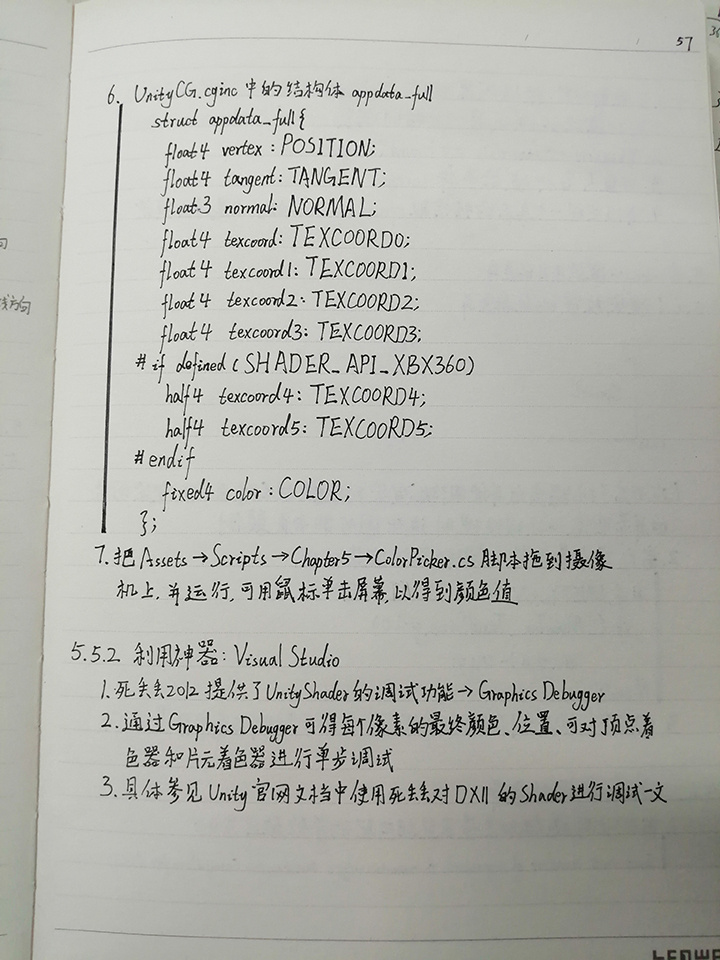 57
6. UnityCG.cginc 中的结构体 appdata_full
struct appdata_full{
float4 vertex : POSITION;
float4 tangent: TANGENT;
float3 normal: NORMAL;
float4 texcoord: TEXCOORD0;
float4 texcoord1: TEXCOORD1;
float4 texcoord2: TEXCOORD2;
float4 texcoord3: TEXCOORD3;
#if defined (SHADER_API_XBX360)
half4 texcoord4: TEXCOORD4;
half4 texcoord5: TEXCOORD5;
#endif
fixed4 color : COLOR;
};
7. 把 Assets→Scripts→Chapter5→ColorPicker.cs 脚本拖到摄像
机上,并运行,可用鼠标单击屏幕,以得到颜色值
5.5.2 利用神器: Visual Studio
1. 死丢丢2012提供了UnityShader的调试功能→Graphics Debugger
2. 通过Graphics Debugger可得每个像素的最终颜色、位置、可对顶点着
色器和片元着色器进行单步调试
3. 具体参见Unity官网文档中使用死丢丢对DX11的Shader进行调试一文